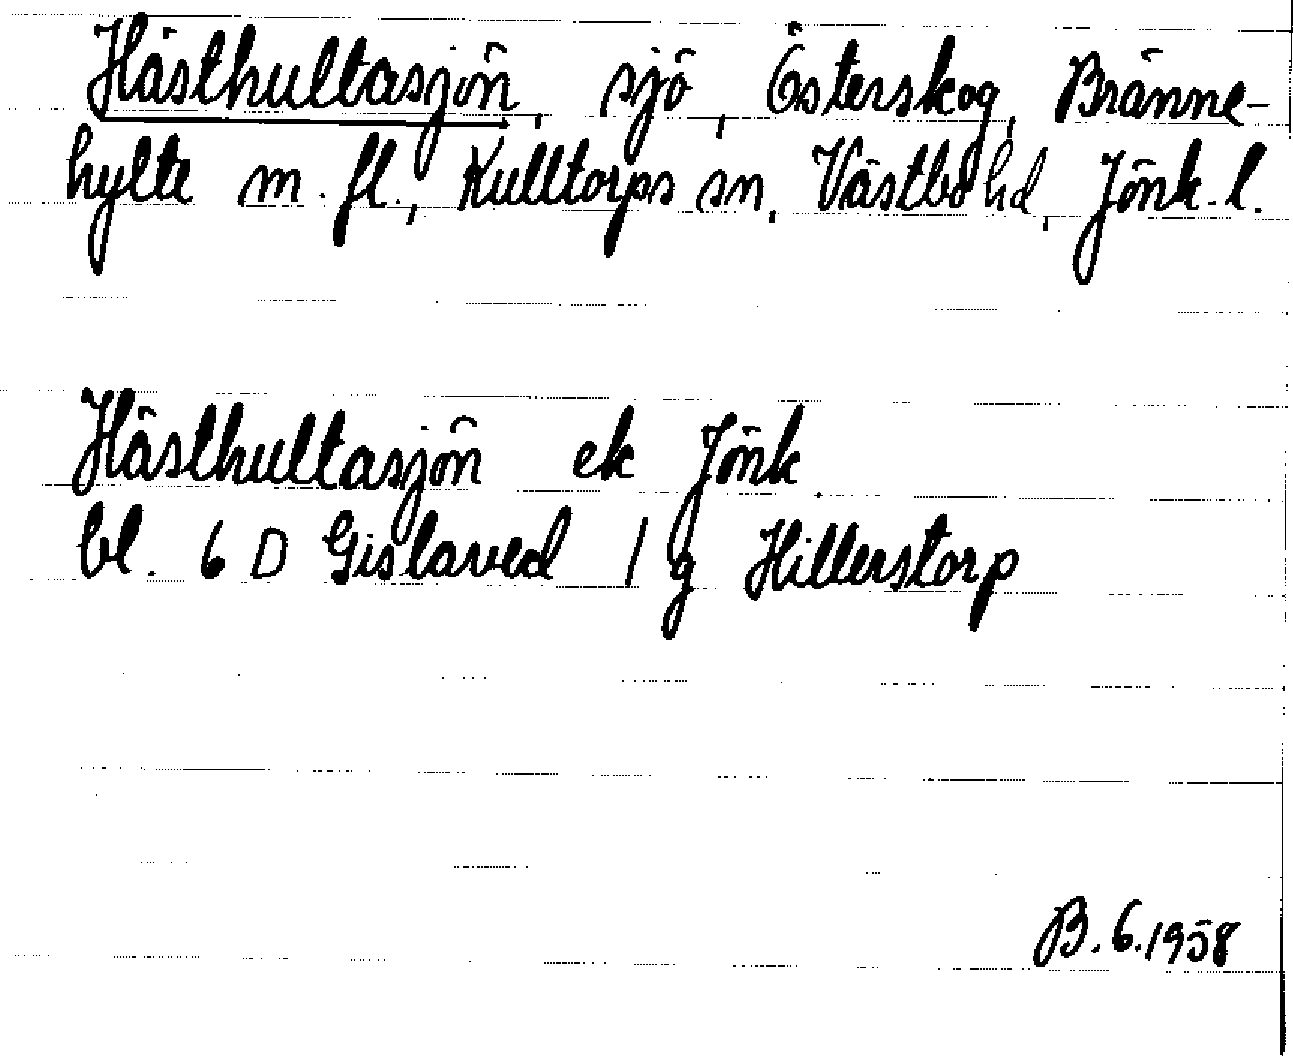 Hästhultasjön, sjö, Österskog, Bränne-
hylte m. fl., Kulltorps sn, Västbo hd, Jönk. l.
Hästhultasjön ek Jönk
bl. 6 D Gislaved / g Hillerstorp
B. 6. 1958